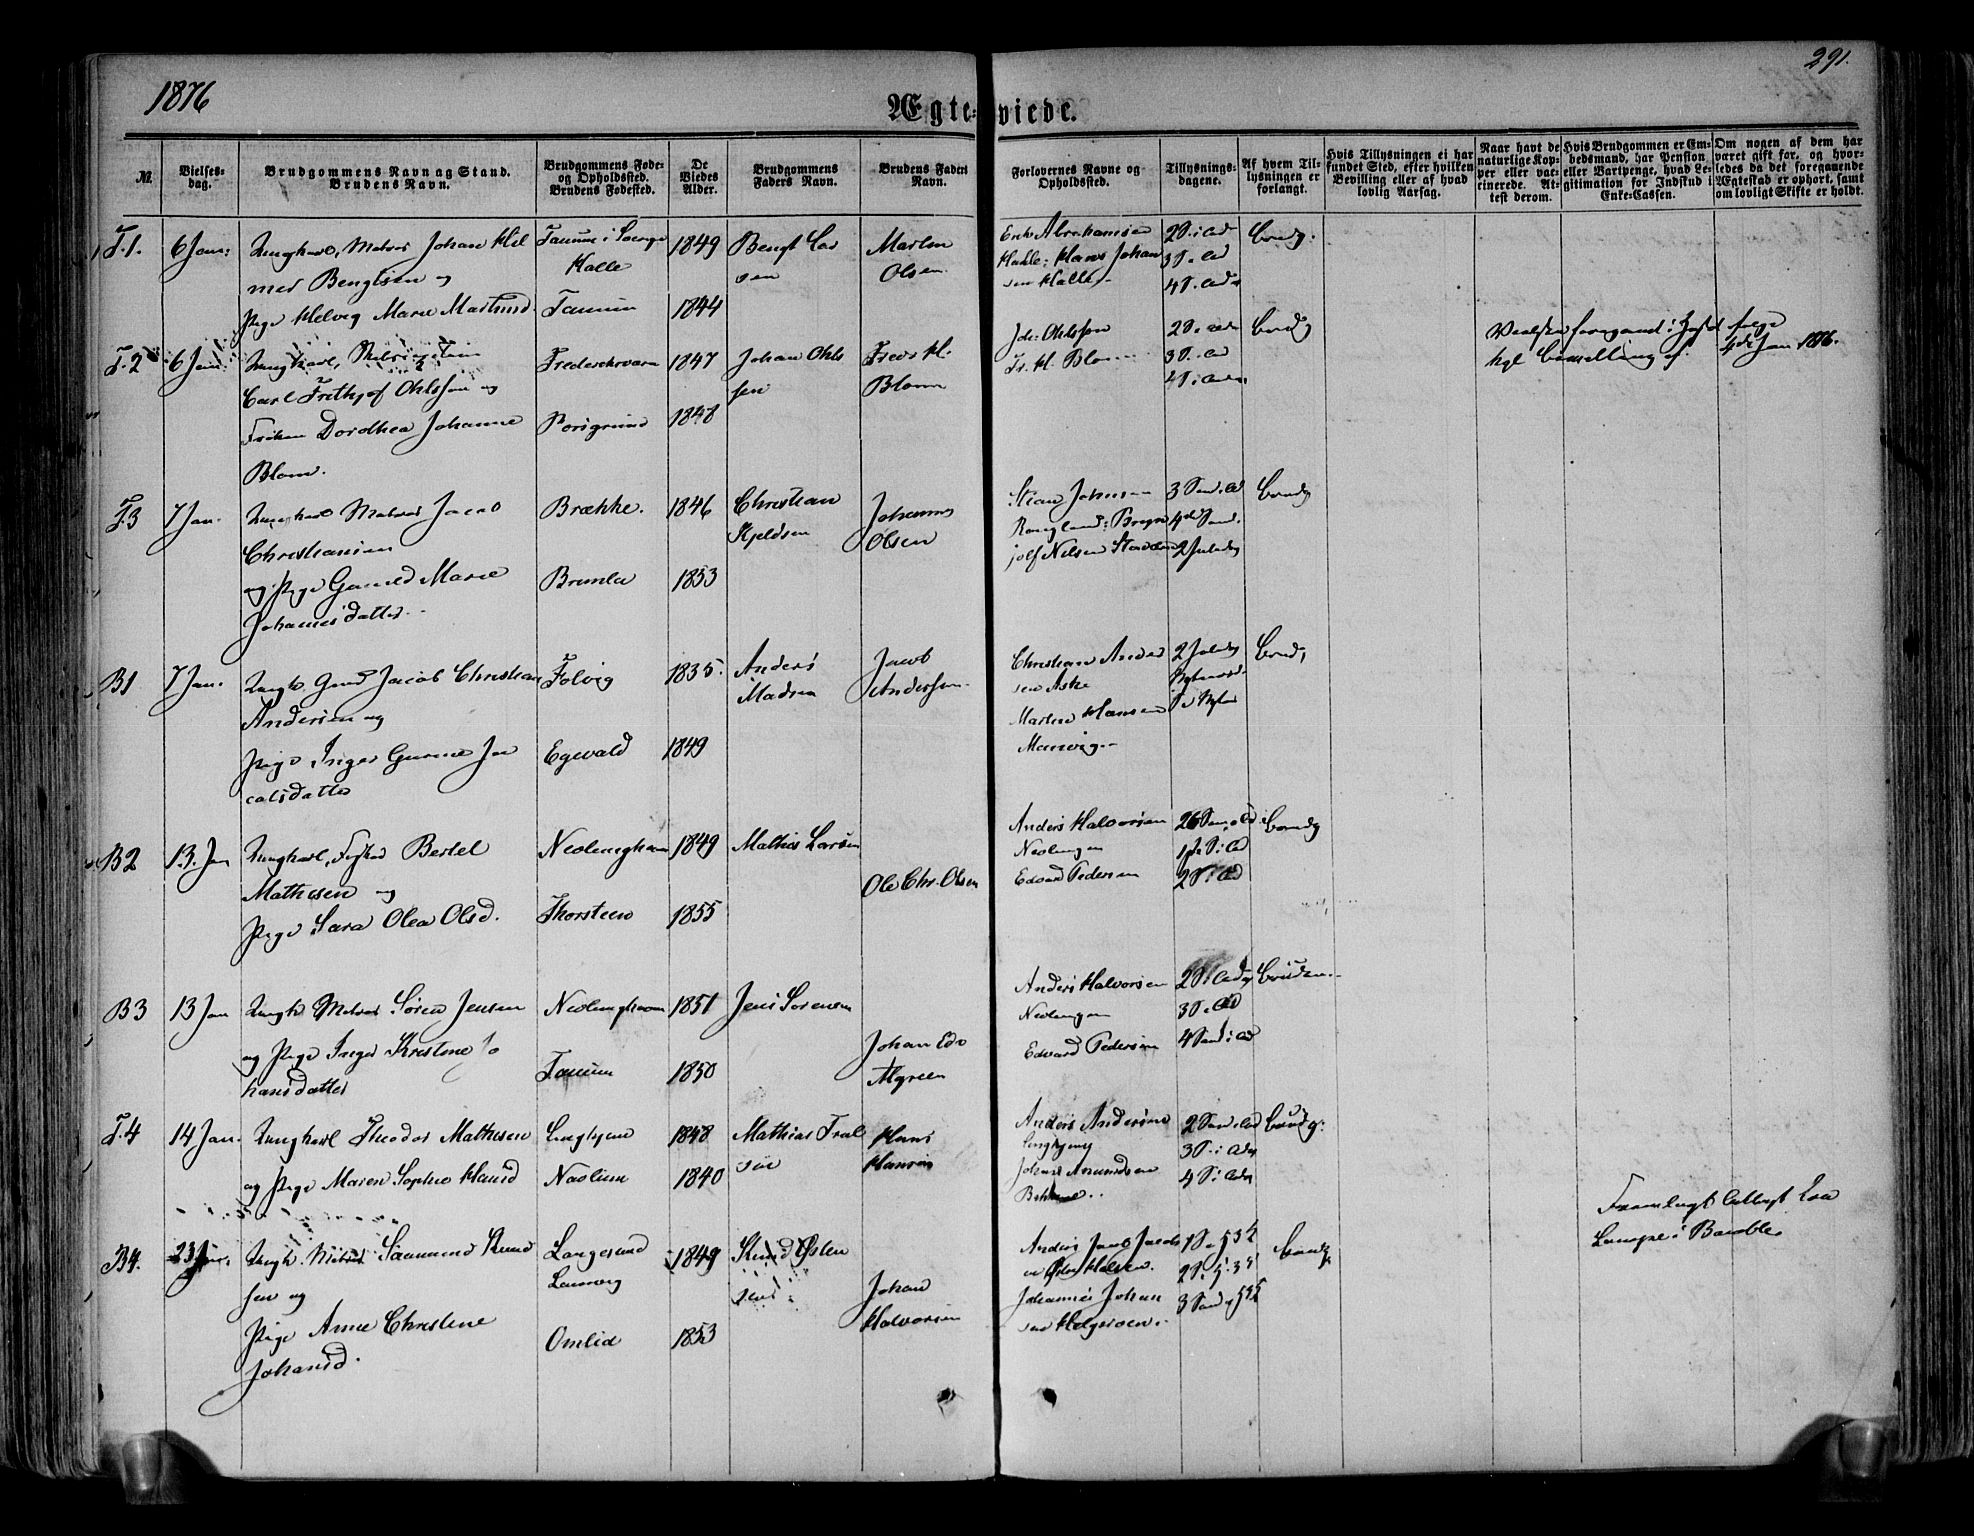 1876
291.
Ægteviede.
№
Vielses-
dag.
Brudgommens Navn og Stand.
Brudens Navn.
Brudgommens Føde-
og Opholdssted.
Brudens Fødested.
De
Viedes
Alder.
Brudgommens
Faders Navn.
Brudens Faders
Navn.
Forlovernes Navne og
Opholdssted.
Tillysnings-
dagene.
Af hvem Til-
lysningen er
forlangt.
Hvis Tillysningen ei har
fundet Sted, efter hvilken
Bevilling eller af hvad
lovlig Aarsag.
Naar havt de
naturlige Kop-
per eller vac-
cinerede. At-
test derom.
Hvis Brudgommen er Em-
bedsmand, har Pension
eller Vartpenge, hvad Le-
gitimation for Indskud i
Enke-Cassen.
Om nogen af dem har
været gift før, og hvor-
ledes da det foregaaende
Ægteskab er ophørt, samt
om lovligt Skifte er holdt.
T.1. 6 Jan: Ungkarl, Matros Johan Hil
mer Bengtsen og
Pige Helvig Marie Martinsd.
Tanum i
Halle
Tanum
1849
1844
Bengt Lar
sen
Martin
Olsen
Erik Abrahamsen
Hahle: Hans Johan
sen Halle
2 S. i Adv
3 S. i Ad
4 S. Adv
Brudg.
T.2 6 Jan. Ungkarl,
Carl Frithjof Ohlsson og
Frøken Dorothea Johanne
Blom.
Frederiksværn
Porsgrund
1847
1848
Johan Ohls
sen
Fredr. H.
Blom
Joh: Ohlsson
Fr. H. Blom
2 S. i Adv
3 S. i Ad
4 S. i Adv
Brudg
Vielsen foregaaet i Huset ifølge
kgl Bevilling af 4de Jan 1876.
T.3 7 Jan. Ungkarl Matros Jacob
Christiansen
og Pige Gunild Marie
Johannesdatter.
Brække.
Brunla
1846
1853
Christian
Kjeldsen
Johannes
Olsen
Stian Johnsen
jolf Nilsen
3 Sønd. i Ad
4de Sønd.
2 Juledag
Brudg
B1 7 Jan. Ungk. Gmd Jacob Christian
Andersen og
Pige Inger Gurine Ja
cobsdatter
Folvig
Egevald
1835.
1849
Anders
Madsen
Jacob
Andersen
Christian Ander
sen Aske
Martin Hansen
Manvig
2 Juledag
Nytaarsd.
Brudg
B2 13. Jan Ungkarl, Fisker Bertel
Mathisen og
Pige Sara Olea Olsd.
Nevlunghavn
Thorsteen
1849
1855
Mathis Larsen
Ole Chr. Olsen
Anders Halvorsen
Nevlungen
Edvard Pedersen
1ste S. i Ad
2 S. i Ad
Brudg
B3 13 Jan Ungk. Matros Søren Jensen
og Pige Inger Kristine Jo
hansdatter
Nevlunghavn
Tanum
1851
1850
Jens Sørensen
Johan Edv
Algreen
Anders Halvorsen
Nevlungen
Edvard Pedersen
2 S. i Adv
3 S. i Ad
4 Sønd i Ad
Bruden
T.4 14 Jan. Ungkarl Theodor Mathisen
og Pige Maren Sophie Hansd
Naolum
1848
1840
Mathias
Hans
Hansen
Anders Andersen
Johan Amundsen
2 Sønd. i Ad
3 S. i Adv
4 S. i Adv
Brudg.
B4. 23 Jan. Ungk. Matros Saamund Knud
sen og
Pige Anne Christine
Johansd.
Langesund
Omlid
1849
1853
Knud Østen
sen
Johan
Halvorsen
Anders Jacob Jacobs
Johannes Johan
sen Helgeroen.
Brudg
Fremlagt Attest fra
i Bamble